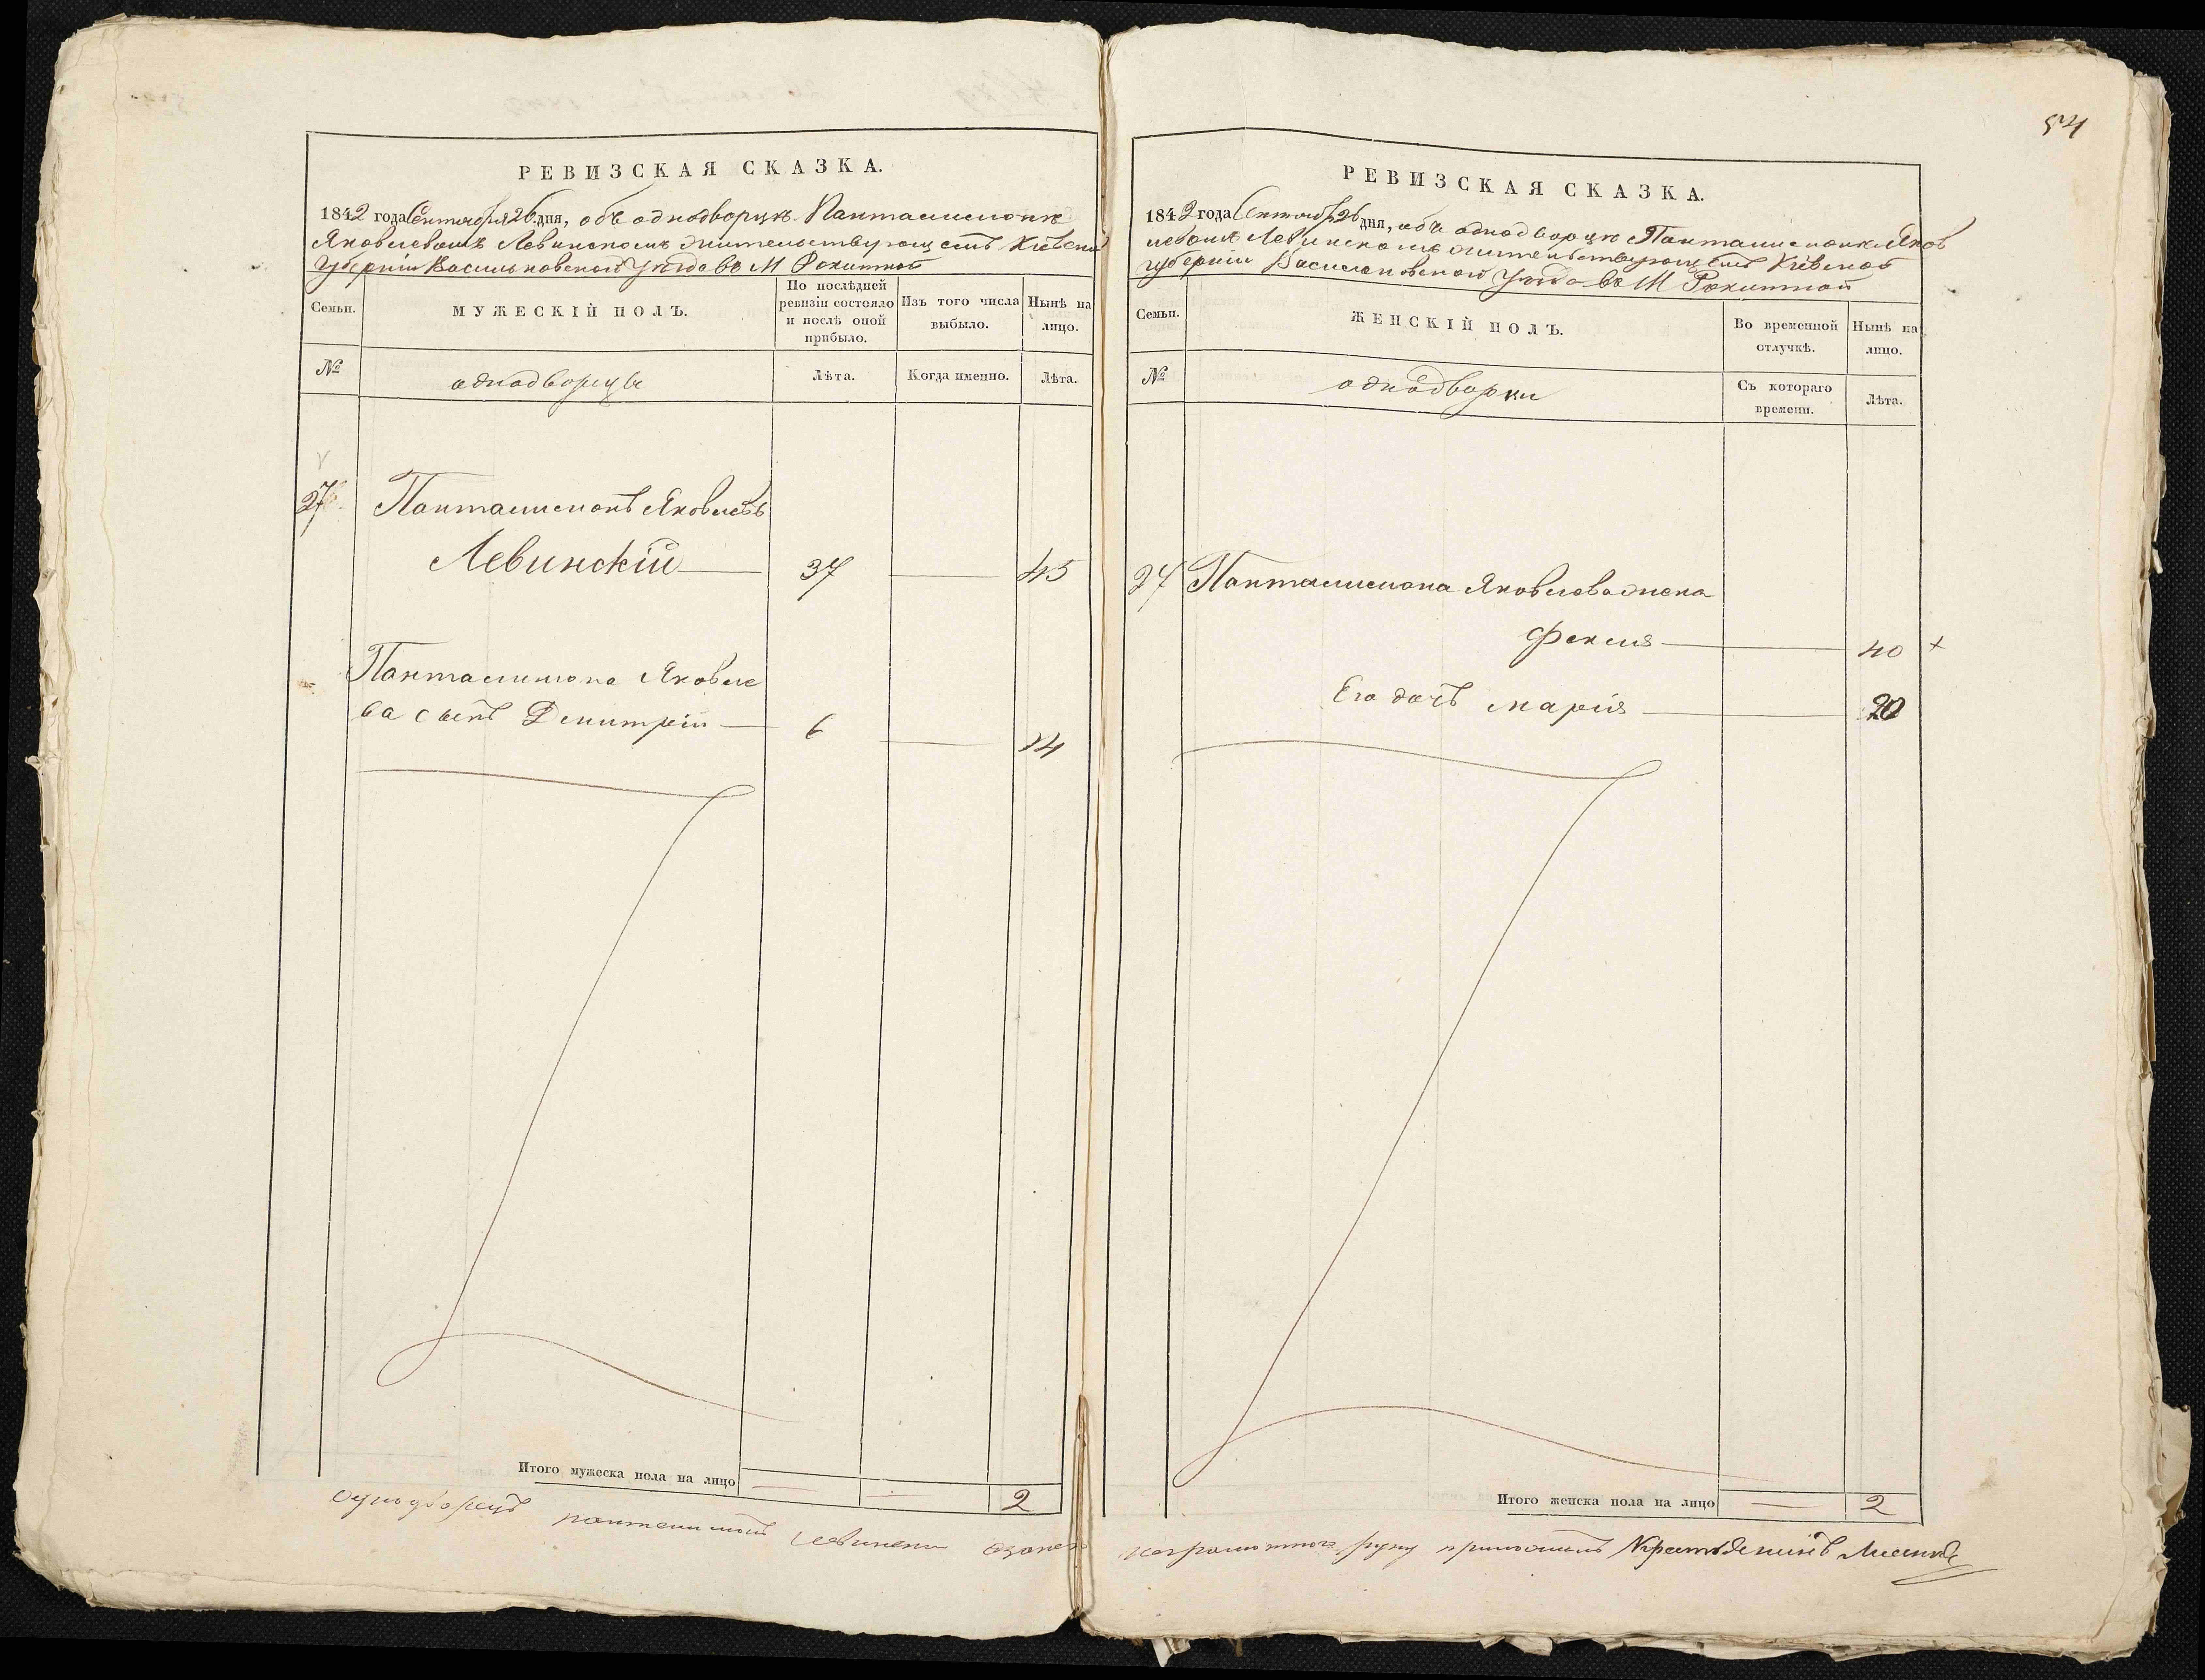 54
РЕВИЗСКАЯ СКАЗКА.
1842 года Сентября 26 дня, объ однодворцѣ Панталимонѣ
Яковлевомъ Левинскомъ жительствующемъ Кіевской
Губерніи Васильковскаго Уѣзда въ М Рокитной
Семьи.
МУЖЕСКІЙ ПОЛЪ.
По послѣдней ревизіи состояло и послѣ оной прибыло.
Изъ того числа выбыло.
Нынѣ на лицо.
№
однодворцы
Лѣта.
Когда именно.
Лѣта.
27 Панталимонъ Яковлевъ
Левинскій 37 45
Панталимона Яковле
ва сынъ Дмитрій 6 14
Итого мужеска пола на лицо 2
однодворецъ Левински
РЕВИЗСКАЯ СКАЗКА.
1842 года Сентябр 26 дня, объ однодворцѣ Панталимонѣ Яков
левомъ Левинскомъ жительствующемъ Кіевской
губерніи Васильковскаго Уѣзда въ М Рокитной
Семьи.
ЖЕНСКІЙ ПОЛЪ.
Во временной отлучкѣ.
Нынѣ на лицо.
№
однодворки
Съ котораго времени.
Лѣта.
27 Панталимона Яковлева жена
Фекла 40 +
Его дочь марія 20
Итого женска пола на лицо 2
неграмотного руку приложилъ